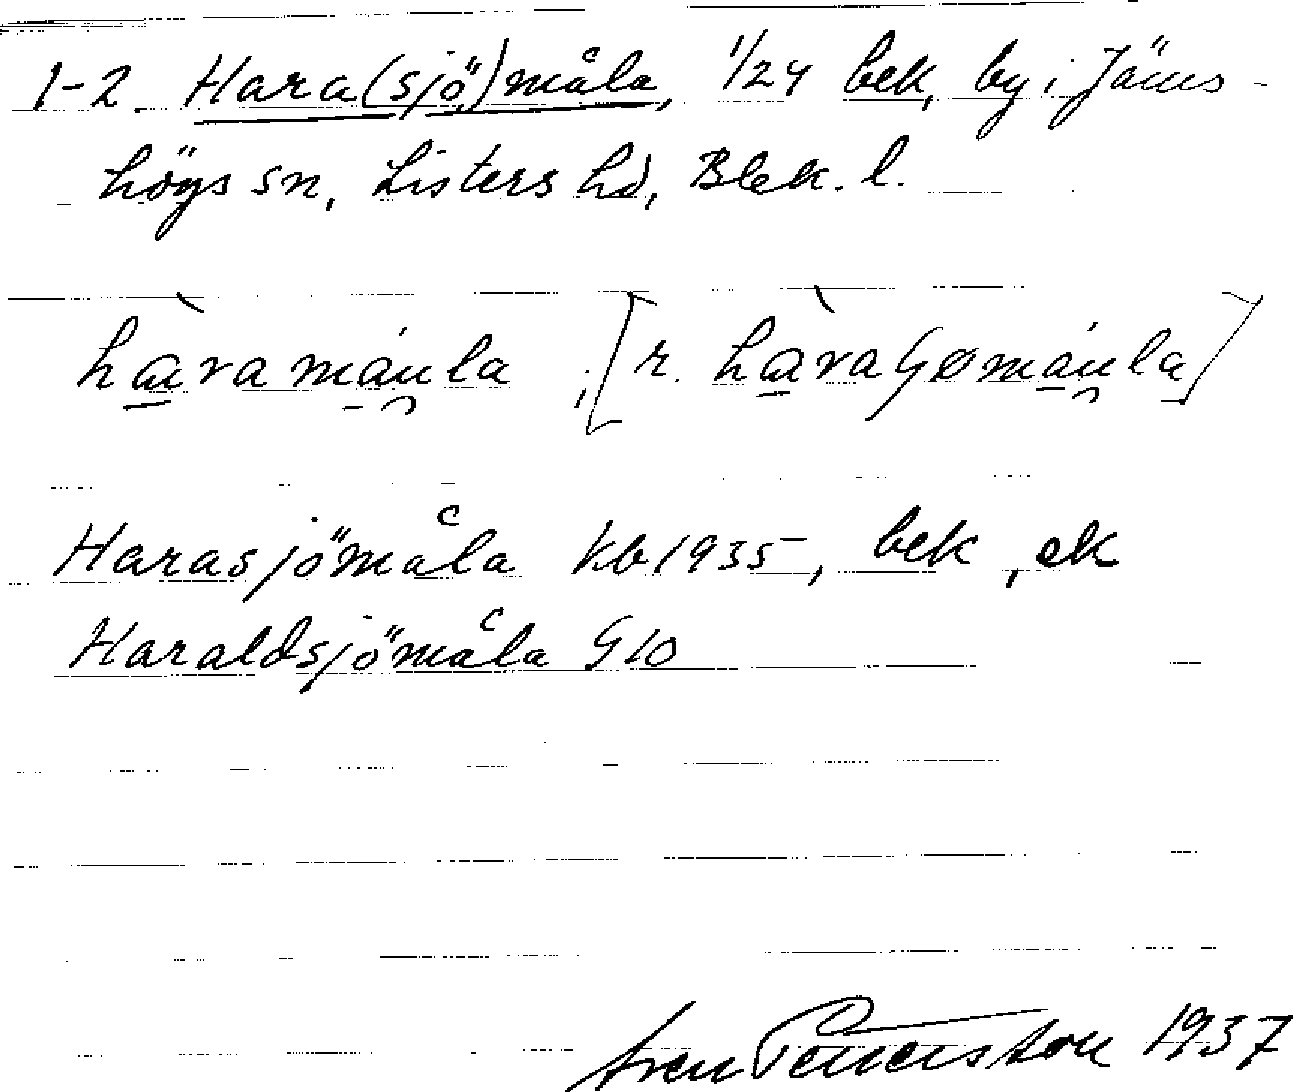 1-2. Hara(sjö)måla, 1/24 bek, by i Jäms-
högs sn, Listers hd, Blek. l.
hàramáula ; [r. hàraʃømáula]
Harasjömåla kb 1935, bek, ek
Haraldsjömåla G10
1937